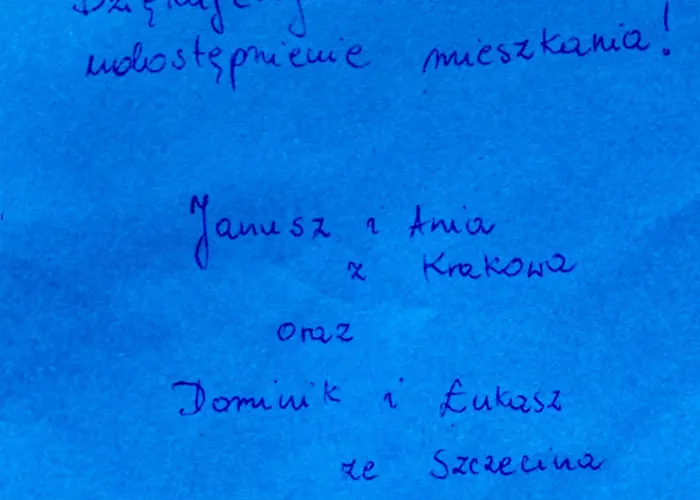 Dziękujemy
udostępnienie mieszkania!
Janusz i Ania
z Krakowa
oraz
Dominik i Łukasz
ze Szczecina